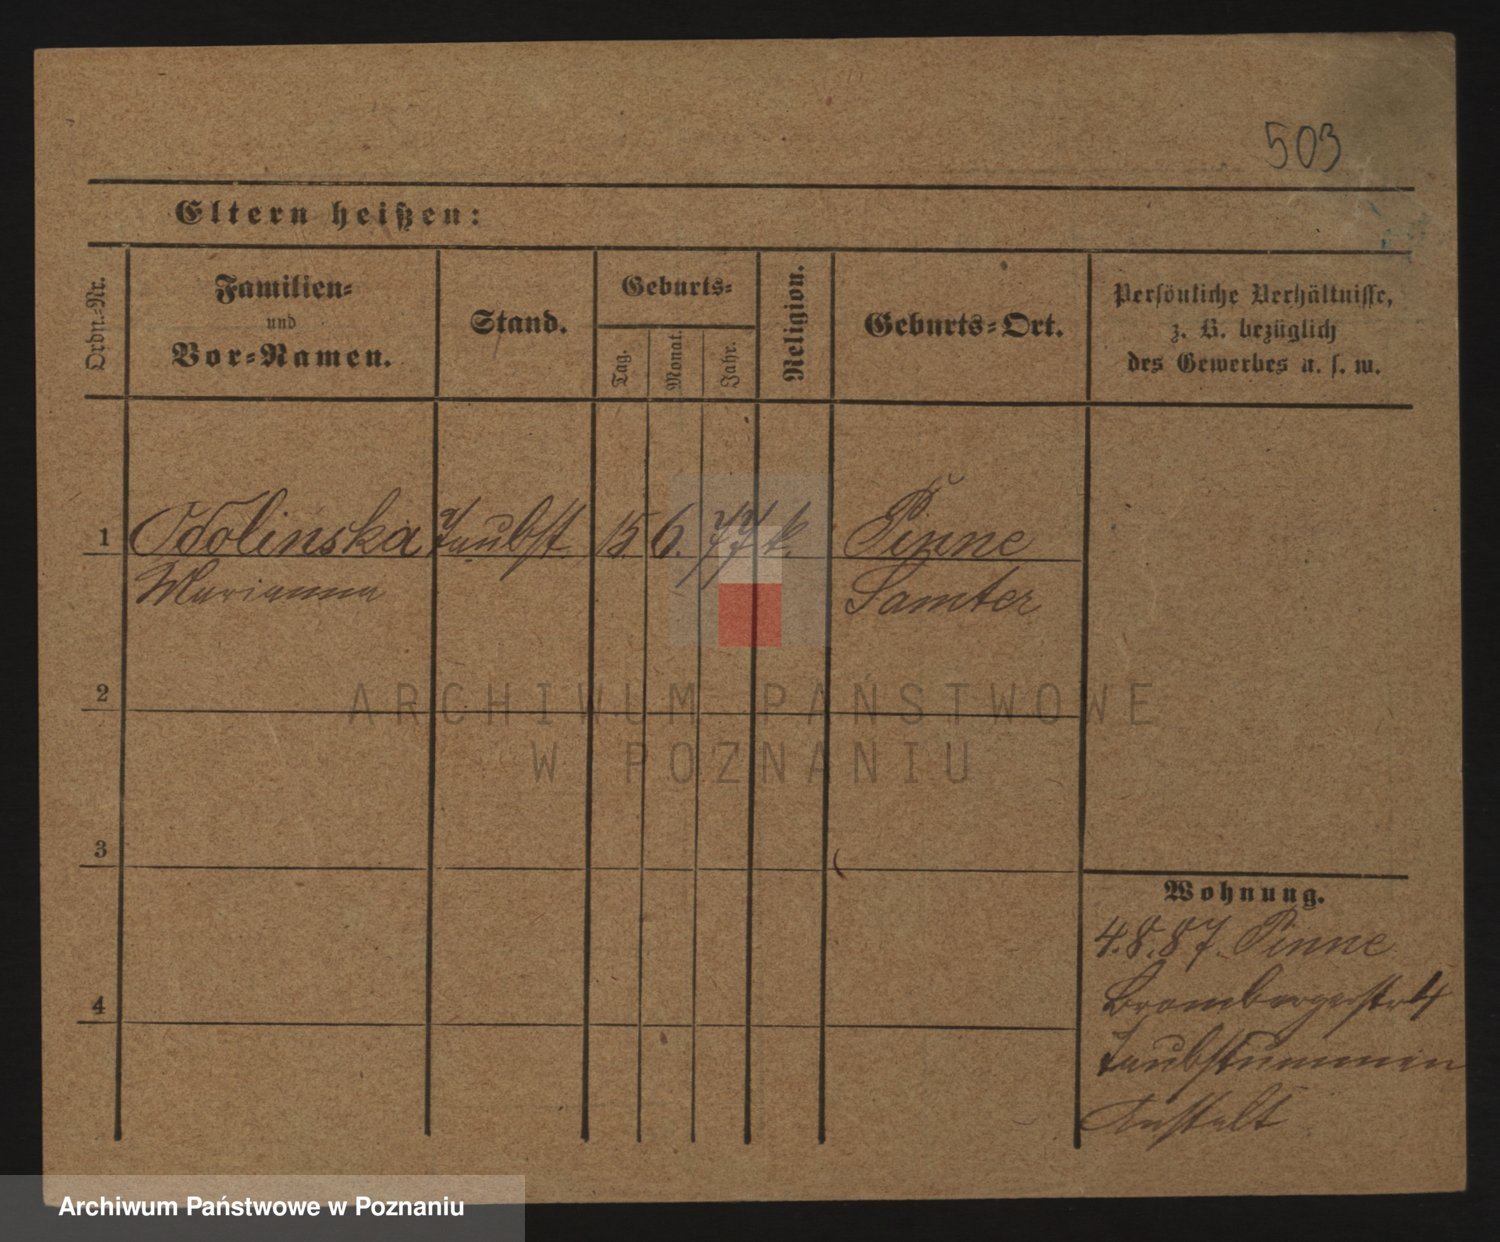 503
Eltern heißen:
Ordn.-Nr.
Familien-
und
Vor-Namen.
Stand.
Geburts-
Tag.
Monat.
Jahr.
Religion.
Geburts-Ort.
Persönliche Verhältnisse,
z. B. bezüglich
des Gewerbes u. s. w.
1 Odolinska Taubst. 15 6. 77 k. Pinne
Marianna Samter
2
3
4
Wohnung.
4.8.87. Pinne
Brombergerstr 4
Taubstummen
Anstalt
ARCHIWUM PAŃSTWOWE
W POZNANIU
Archiwum Państwowe w Poznaniu